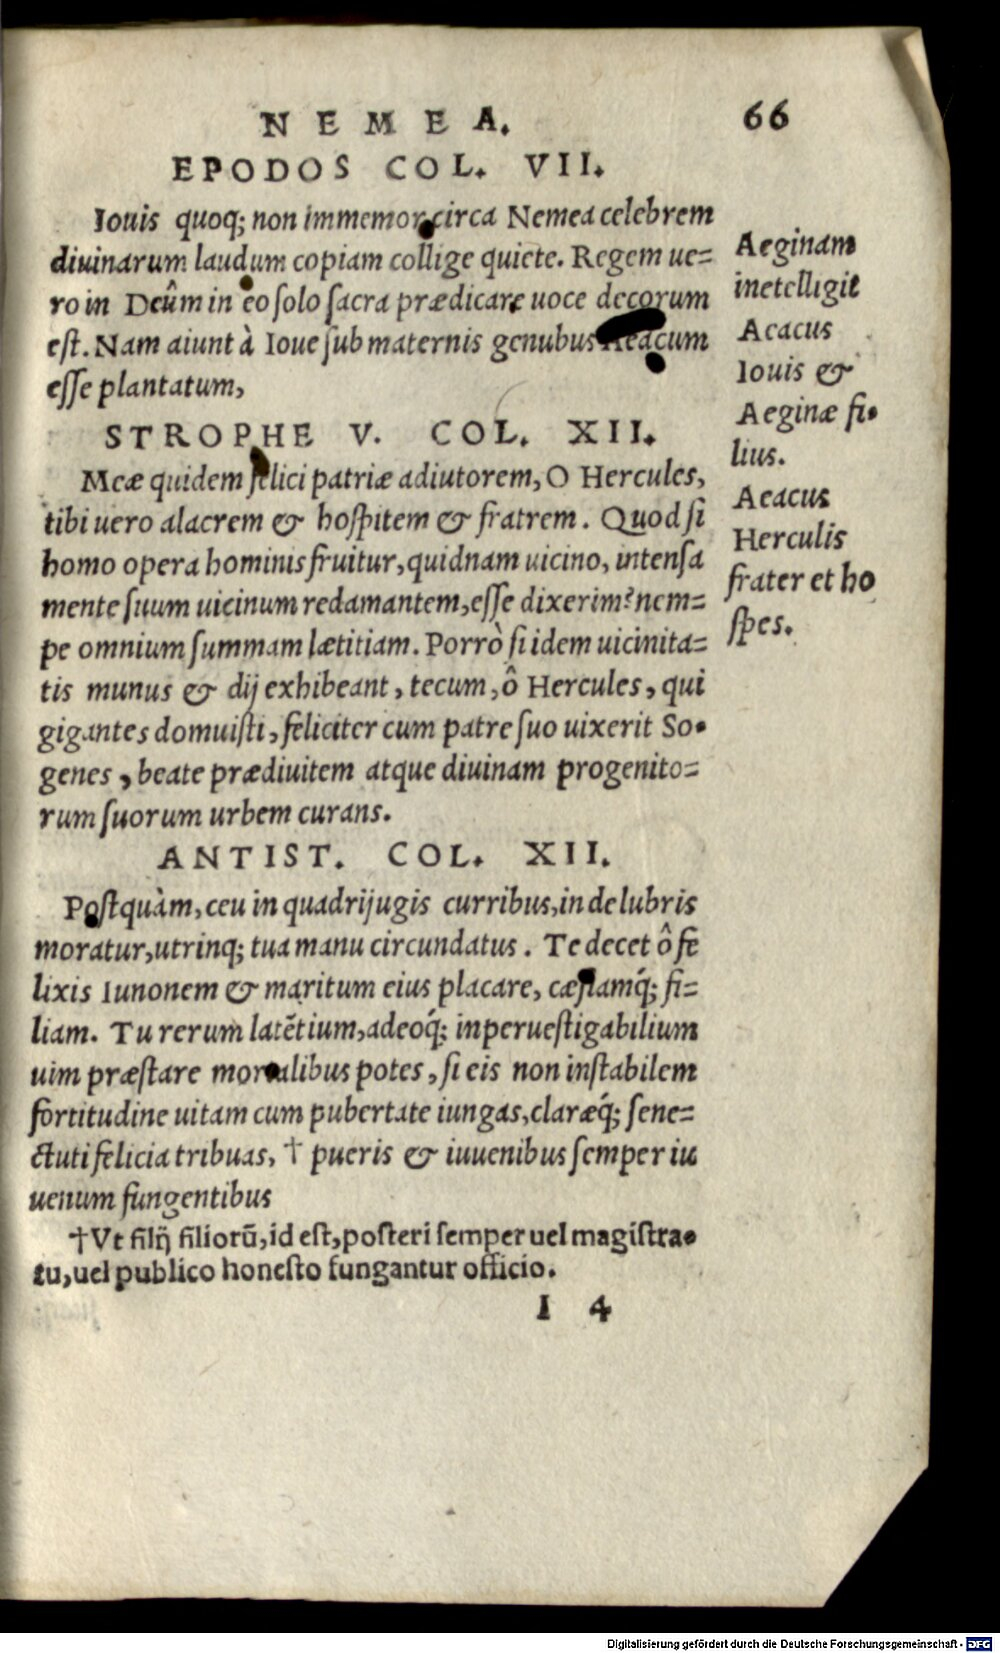 NEMEA. 66
EPODOS COL. VII.
Iouis quoq; non immemor circa Nemea celebrem
diuinarum laudum copiam collige quiete. Regem ue=
ro in Deûm in eo solo sacra prædicare uoce decorum
est. Nam aiunt à Ioue sub maternis genubus Aeacum
esse plantatum,
Aeginam
inetelligit
Aeacus
Iouis &
Aeginæ fi•
lius.
STROPHE V. COL. XII.
Meæ quidem felici patriæ adiutorem, O Hercules,
tibi uero alacrem & hospitem & fratrem. Quod si
homo opera hominis fruitur, quidnam uicino, intensa
mente suum uicinum redamantem, esse dixerim? nem=
pe omnium summam lætitiam. Porrò si idem uicinita=
tis munus & dij exhibeant, tecum, ô Hercules, qui
gigantes domuisti, feliciter cum patre suo uixerit So•
genes, beate prædiuitem atque diuinam progenito=
rum suorum urbem curans.
Aeacus
Herculis
frater et ho
spes.
ANTIST. COL. XII.
Postquàm, ceu in quadrijugis curribus, in delubris
moratur, utrinq; tua manu circundatus. Te decet ô fe
lixis Iunonem & maritum eius placare, cæsiamq́; fi=
liam. Tu rerum latētium, adeoq́; inperuestigabilium
uim præstare mortalibus potes, si eis non instabilem
fortitudine uitam cum pubertate iungas, claræq́; sene=
ctuti felicia tribuas, † pueris & iuuenibus semper iu
uenum fungentibus
†Vt filij filiorū, id est, posteri semper uel magistra•
tu, uel publico honesto fungantur officio.
I 4
Digitalisierung gefördert durch die Deutsche Forschungsgemeinschaft - DFG